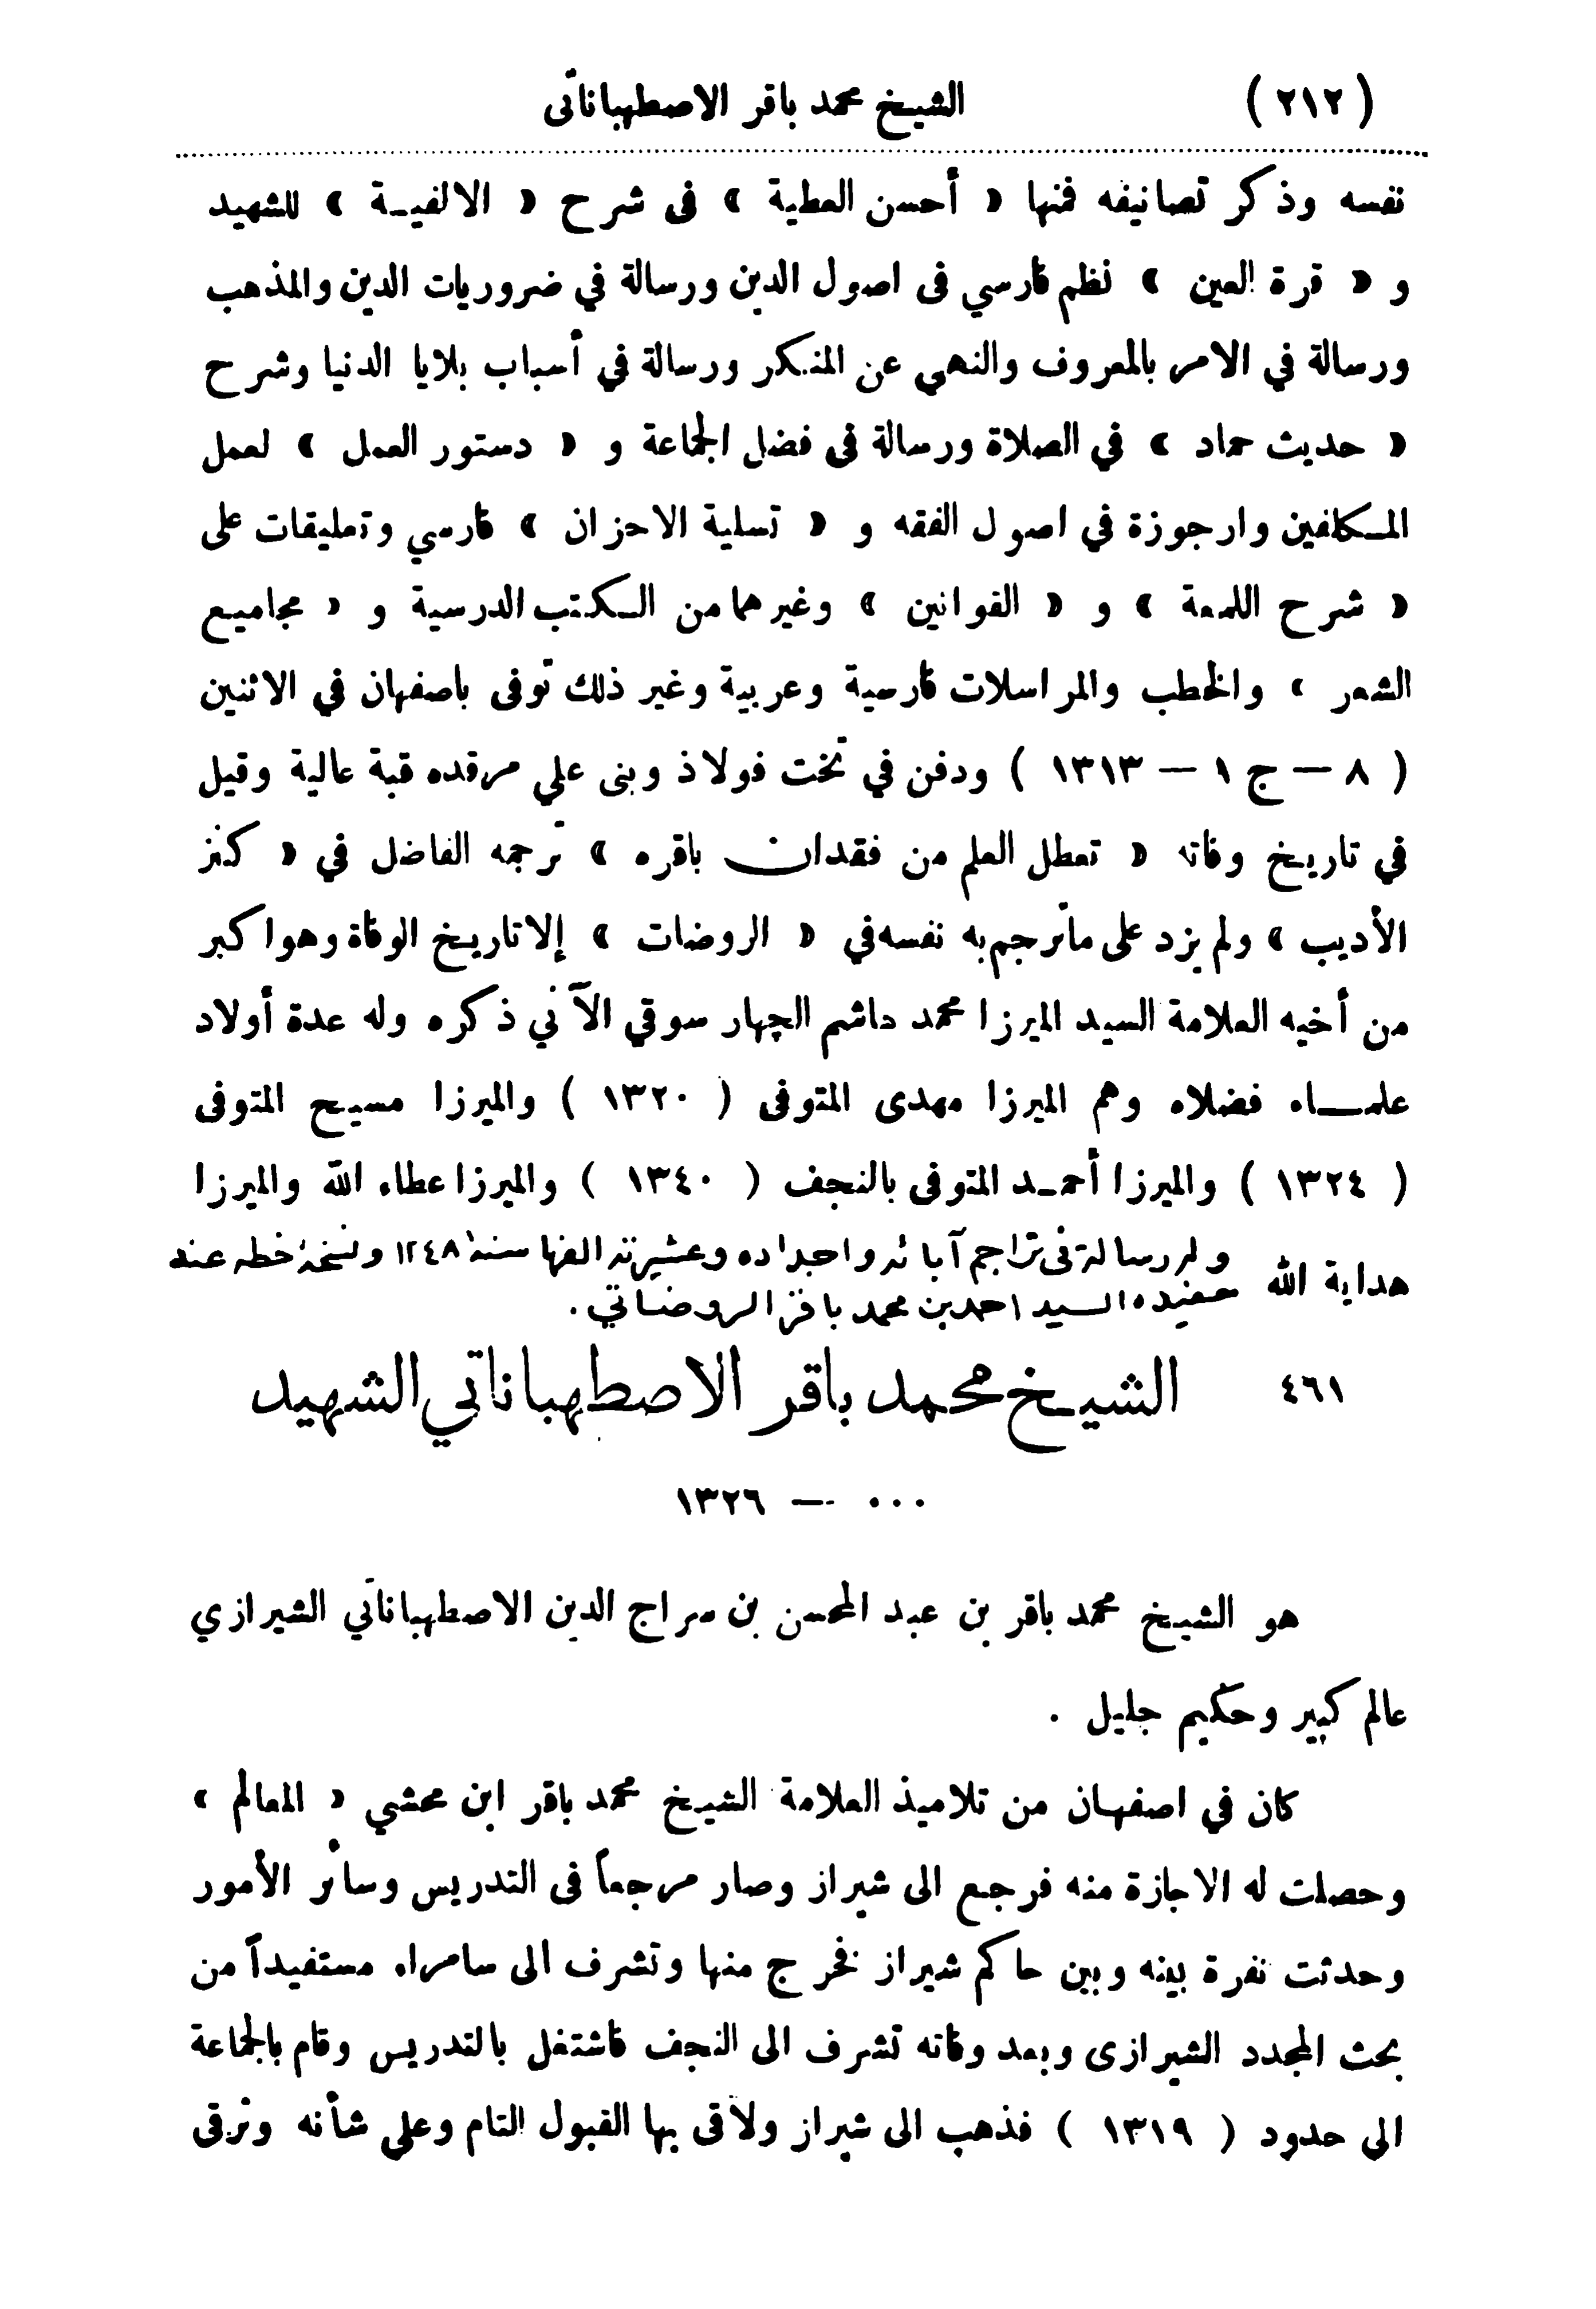 ( ٢١٢ ) الشيخ محمد باقر الاصطهباناتى
نفسه وذكر تصانيفه فمنها « أحسن العطية » فى شرح « الالفيـة » للشهيد
و « قرة العين » نظم فارسي فى اصول الدين ورسالة في ضروريات الدين والمذهب
ورسالة في الامر بالمعروف والنهي عن المنكر ورسالة في أسباب بلايا الدنيا وشرح
« حديث حماد » في الصلاة ورسالة فى فضل الجماعة و « دستور العمل » لعمل
المـكلفين وارجوزة في اصول الفقه و « تسلية الاحزان » فارسي وتعليقات على
« شرح اللمعة » و « القوانين » وغيرهما من الـكتب الدرسية و « مجاميع
الشعر » والخطب والمراسلات فارسية وعربية وغير ذلك توفى باصفهان في الاثنين
( ٨ — ج ١ — ١٣١٣ ) ودفن في تخت فولاذ وبنى علي مرقده قبة عالية وقيل
في تاريخ وفاته « تعطل العلم من فقدان باقره » ترجمه الفاضل في « كنز
الأديب » ولم يزد على ماترجم به نفسه في « الروضات » إلا تاريخ الوفاة وهو اكبر
من أخيه العلامة السيد الميرزا محمد هاشم الچهار سوقي الآتي ذكره وله عدة أولاد
علمـــاء فضلاء وهم الميرزا مهدى المتوفى ( ١٣٢٠ ) والميرزا مسيح المتوفى
( ١٣٢٤ ) والميرزا أحمـد المتوفى بالنجف ( ١٣٤٠ ) والميرزا عطاء الله والميرزا
هداية الله وله رسالة فى تراجم آبائه واجداده وعشيرته الفها سنة ١٢٤٨ ونسخة خطه عند
حفيده السيد احمد بن محمد باقر الروضاتي .
٤٦١ الشيخ محمد باقر الاصطهباناتي الشهيد
٠٠٠ — ١٣٢٦
هو الشيخ محمد باقر بن عبد المحسن بن سراج الدين الاصطهباناتي الشيرازي
عالم كبير وحكيم جليل .
كان في اصفهان من تلاميذ العلامة الشيخ محمد باقر ابن محشي « المعالم »
وحصلت له الاجازة منه فرجع الى شيراز وصار مرجعاً فى التدريس وسائر الأمور
وحدثت نفرة بينه وبين حاكم شيراز فخرج منها وتشرف الى سامراء مستفيداً من
بحث المجدد الشيرازى وبعد وفاته تشرف الى النجف فاشتغل بالتدريس وقام بالجماعة
الى حدود ( ١٣١٩ ) فذهب الى شيراز ولاقى بها القبول التام وعلي شأنه وترقى